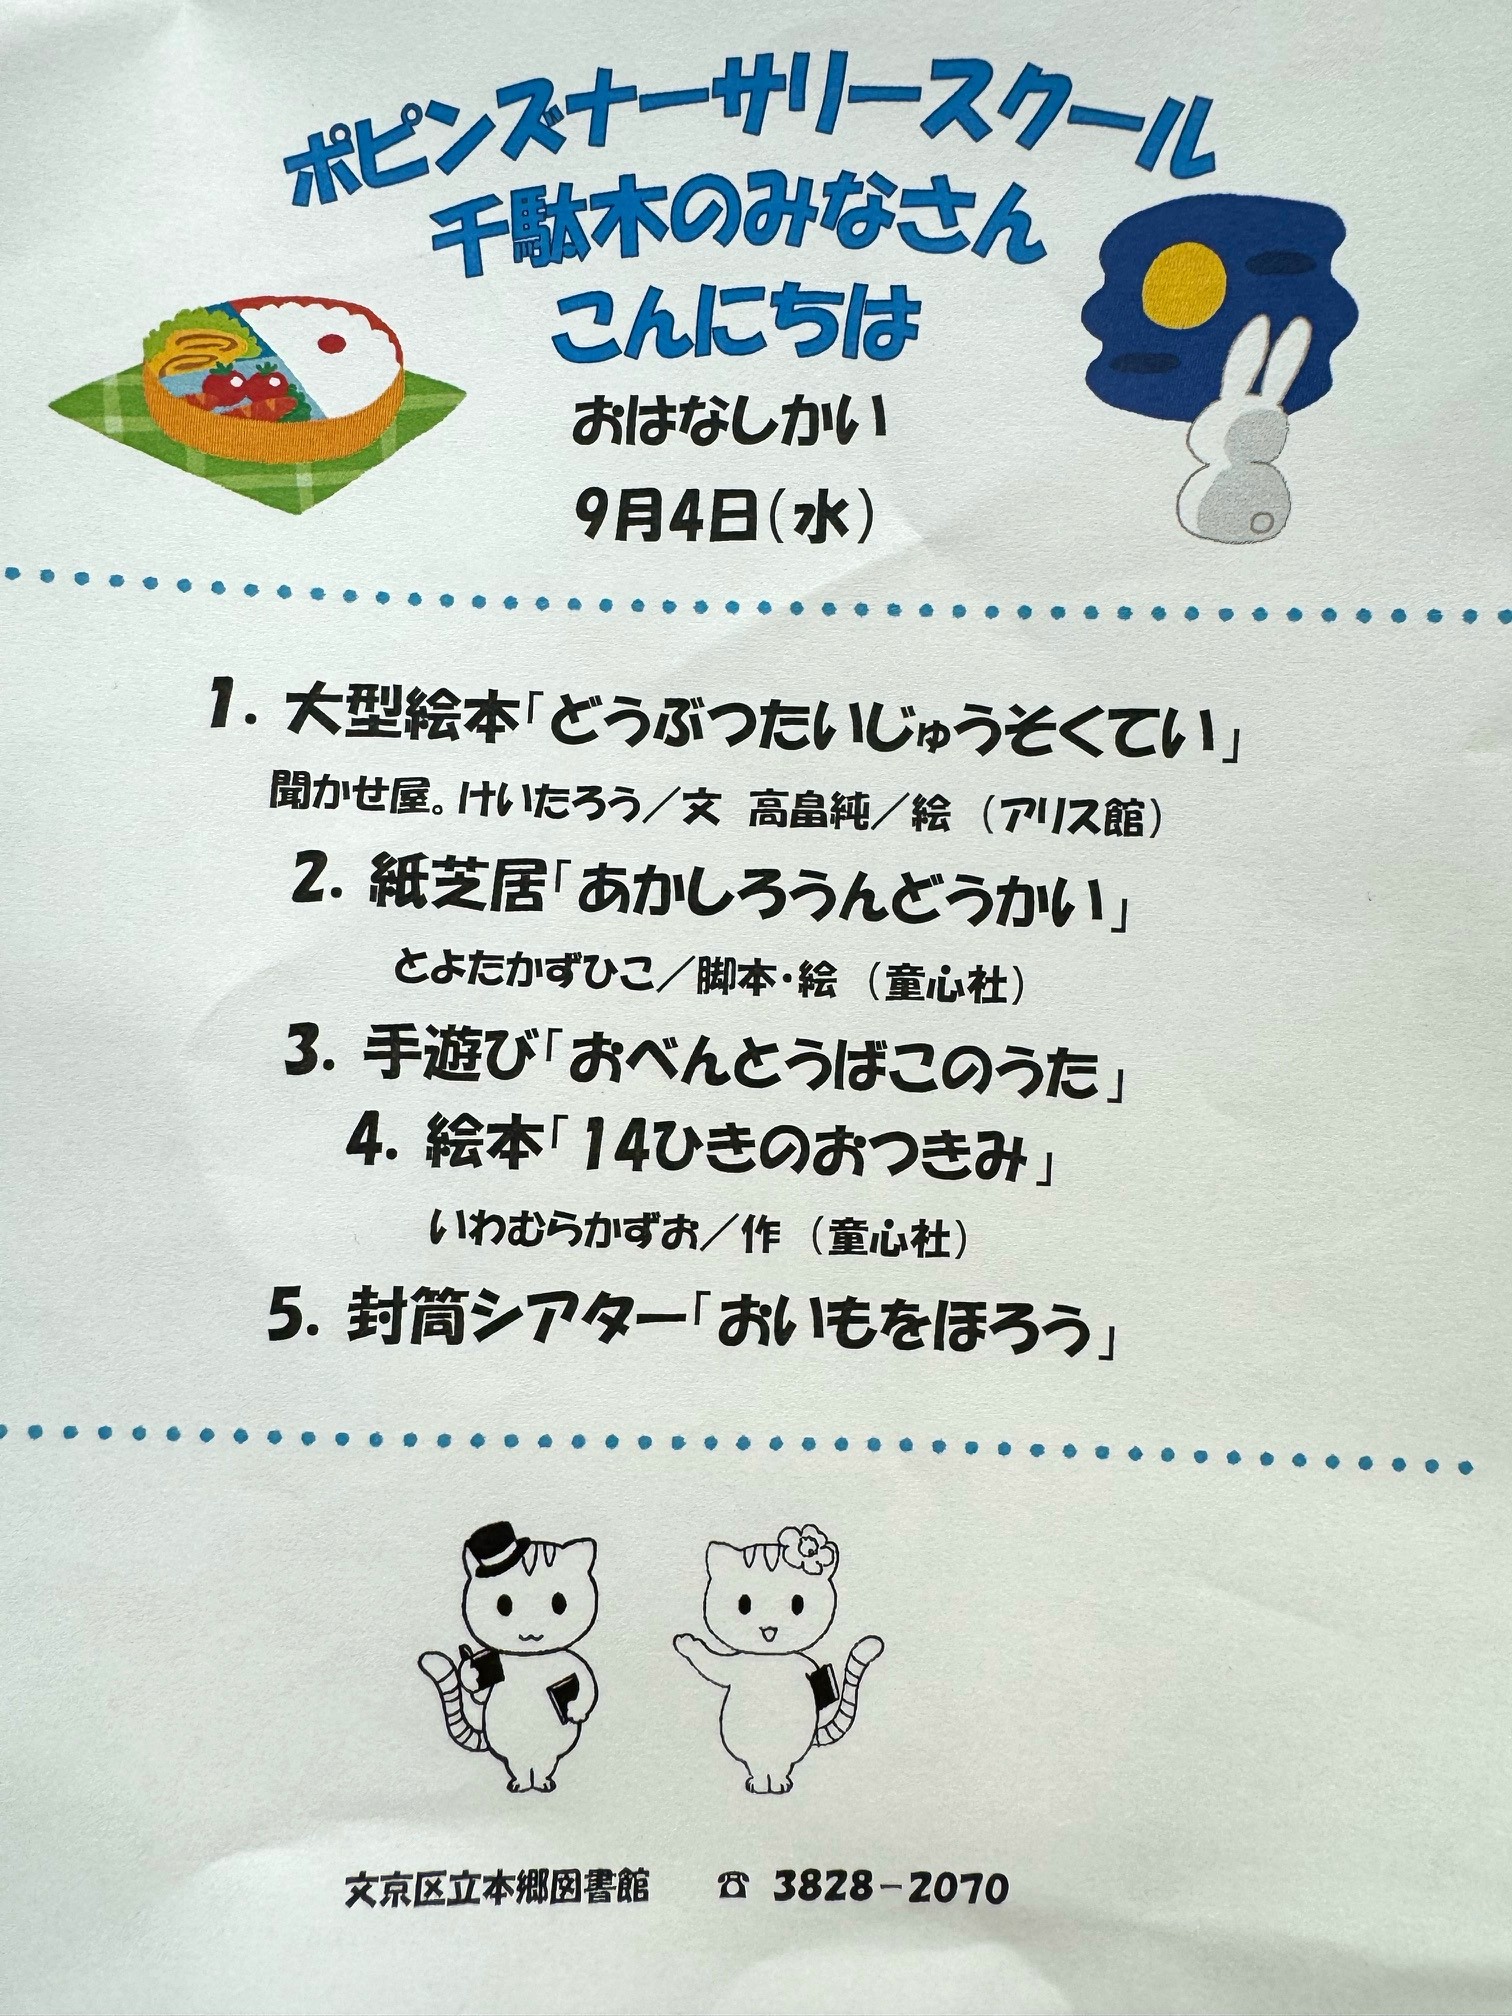 ポピンズナーサリースクール
千駄木のみなさん
こんにちは
おはなしかい
9月4日(水)
1. 大型絵本「どうぶつたいじゅうそくてい」
聞かせ屋。けいたろう/文 高畠純/絵 (アリス館)
2. 紙芝居「あかしろうんどうかい」
とよたかずひこ/脚本・絵 (童心社)
3. 手遊び「おべんとうばこのうた」
4. 絵本「14ひきのおつきみ」
いわむらかずお/作 (童心社)
5. 封筒シアター「おいもをほろう」
文京区立本郷図書館 ☎ 3828-2070